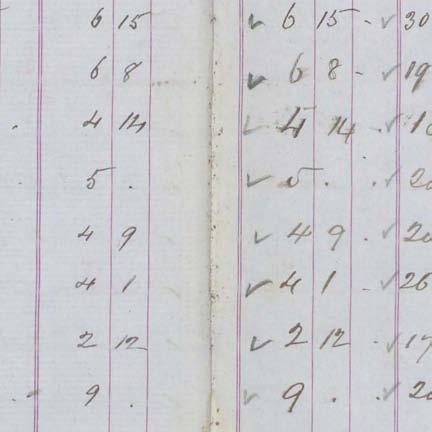 6 15 ✓ 6 15 - ✓ 30
6 8 ✓ 6 8 - ✓ 19
4 14 ✓ 4 14 . ✓
5 . ✓ 5 . . ✓
4 9 ✓ 4 9 . ✓
4 1 ✓ 4 1 - ✓ 26
2 12 ✓ 2 12 ✓ 17
9 . ✓ 9 . . ✓